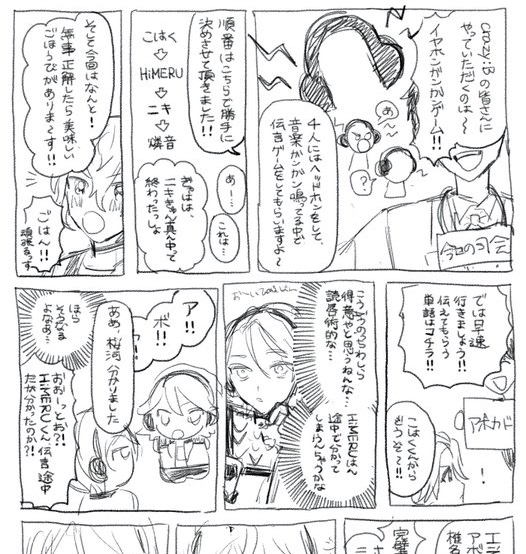 crazy:Bの皆さんに
やっていただくのは〜
イヤホンガンガンゲーム!!
あ〜
?
4人にはヘッドホンをして、
音楽ガンガン鳴ってる中で
伝言ゲームをしてもらいますよ〜
今日の司会
順番はこちらで勝手に
決めさせて頂きました!!
こはく
HiMERU
ニキ
燐音
あー…
これは…
ぎゃはは、
ニキきゅん真ん中って
終わったっしょ
そして今回はなんと!!
無事正解したら美味しい
ごほうびがありま〜す!!
ごはん!!
頑張るっす
では早速
行きましょう!!
伝えてもらう
単語はコチラ!!
アボカド
!
こはくくんから
どうぞ〜!!
こういうのちゃわしら
得意やと思うねんな…
読唇術的な…
HiMERUはん
途中で分かって
しまうんちゃうかな
お〜いこはくん
ア!!
ボ!!
ほら
そうなる
よなぁ…
あぁ、桜河分かりました
おおーっとぉ?!
HiMERUくん伝言途中
だが分かったのか?!
アボ
椎名
完璧
ニキ